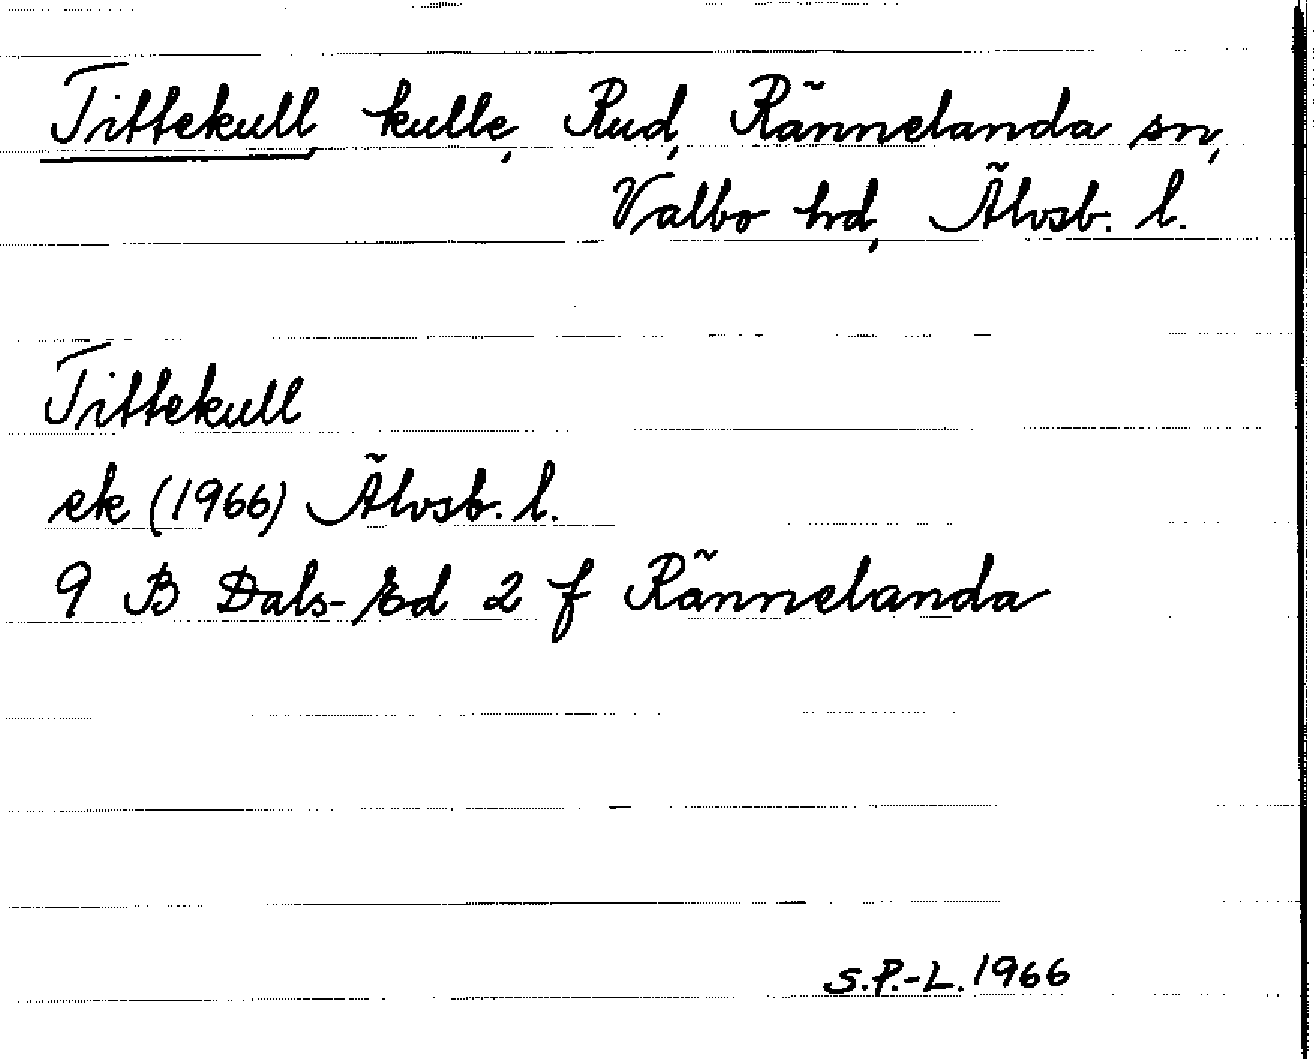 Tittekull, kulle, Rud, Rännelanda sn,
Valbo hd, Älvsb. l.
Tittekull
ek (1966) Älvsb. l.
9 B Dals-Ed 2 f Rännelanda
S.P.-L. 1966